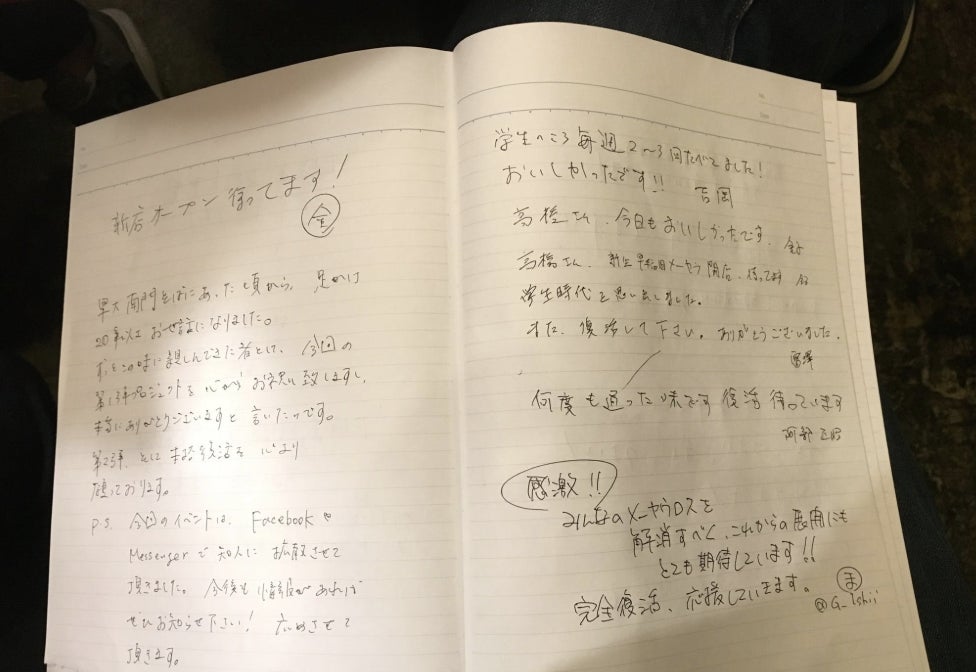 新店オープン待ってます!
金
早大南門そばにあった頃から、足かけ
20年以上お世話になりました。
ずっとこの味に親しんできた者として、今回の
第1弾プロジェクトを心からお祝い致しますし、
本当にありがとうございますと言いたいです。
第2弾、そして本格復活を心より
願っております。
P.S. 今回のイベントは、Facebookや
Messengerで知人に拡散させて
頂きました。今後も情報があれば
ぜひお知らせ下さい! 広めさせて
頂きます。
学生のころ毎週2〜3回たべてました!
おいしかったです!! 吉岡
高橋さん、今日もおいしかったです。
高橋さん、新生早稲田メーヤウ開店、待ってます
学生時代を思い出しました。
また、復活して下さい。ありがとうございました。
何度も通った味です 復活待っています
阿部
感激!!
みんなのメーヤウロスを
解消すべく、これからの展開にも
とても期待しています!!
完全復活、応援していきます。 ま
@G_Ishii